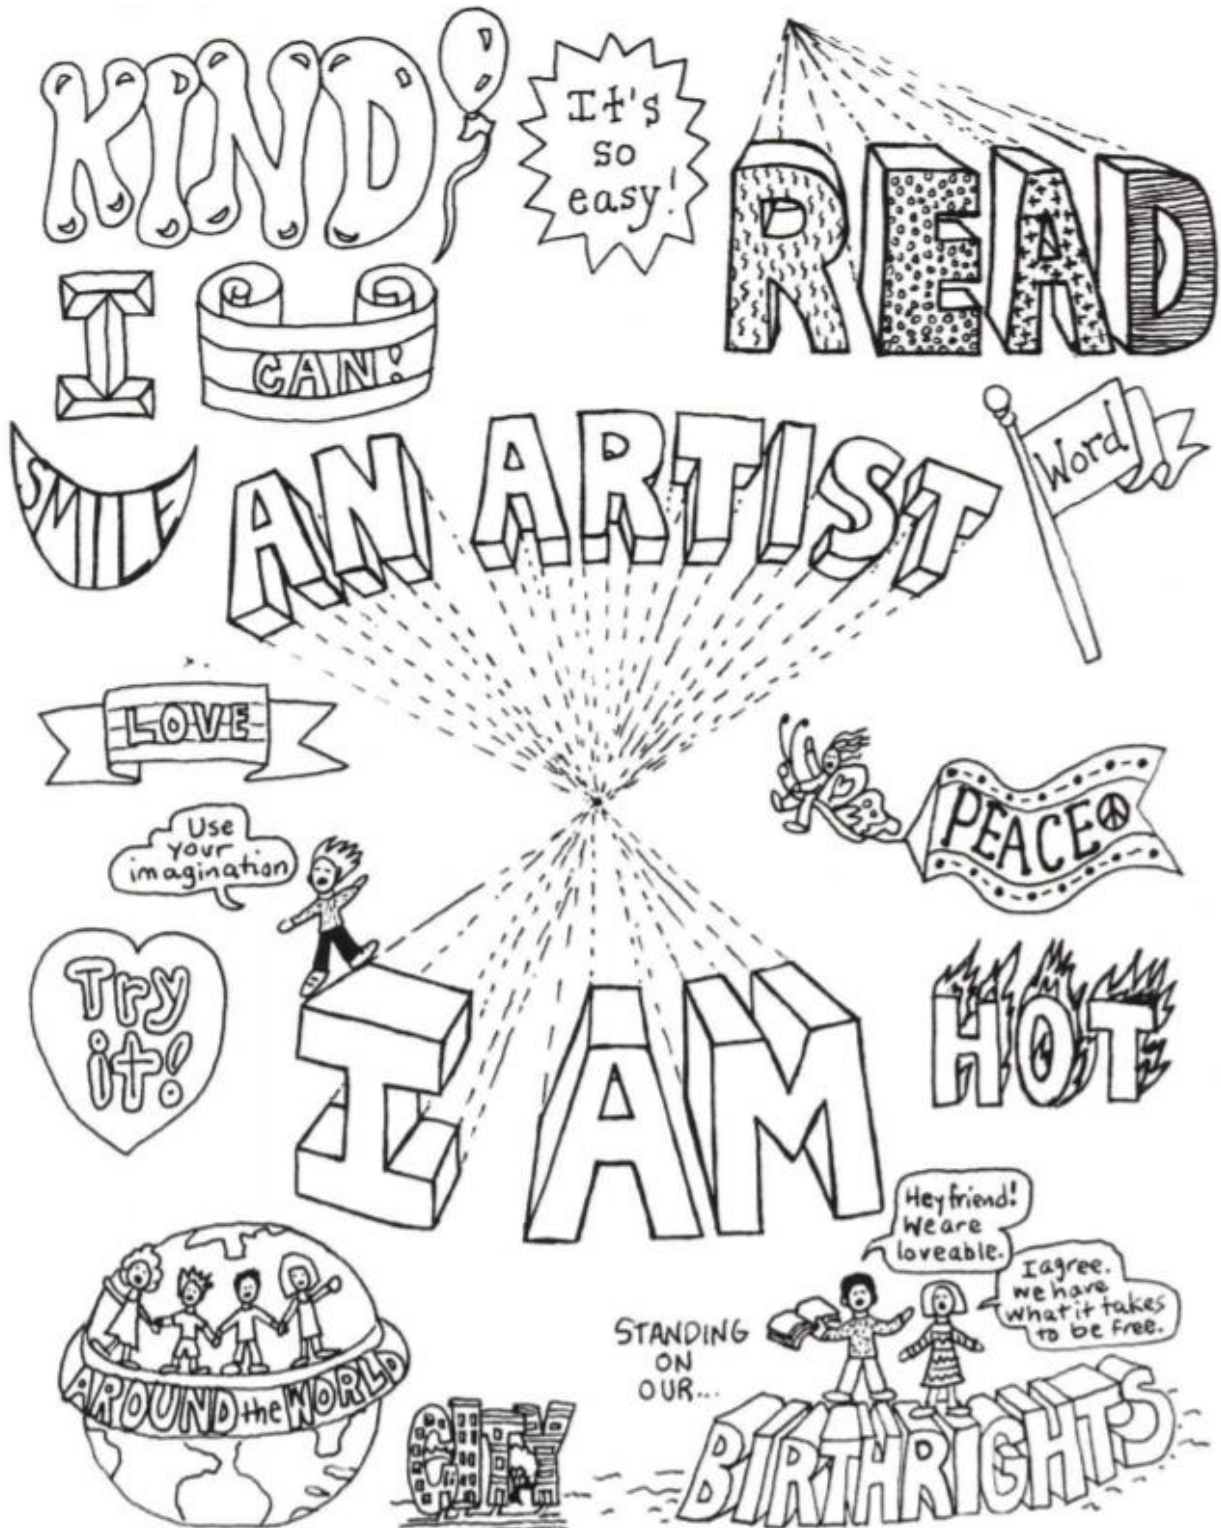 KIND
It's
so
easy!
READ
I
CAN!
SMILE
AN ARTIST
Word
LOVE
PEACE
Use
your
imagination
Try
it!
HOT
I AM
Hey friend!
We are
loveable.
I agree.
we have
what it takes
to be free.
STANDING
ON
OUR...
AROUND the WORLD
CITY
BIRTHRIGHTS